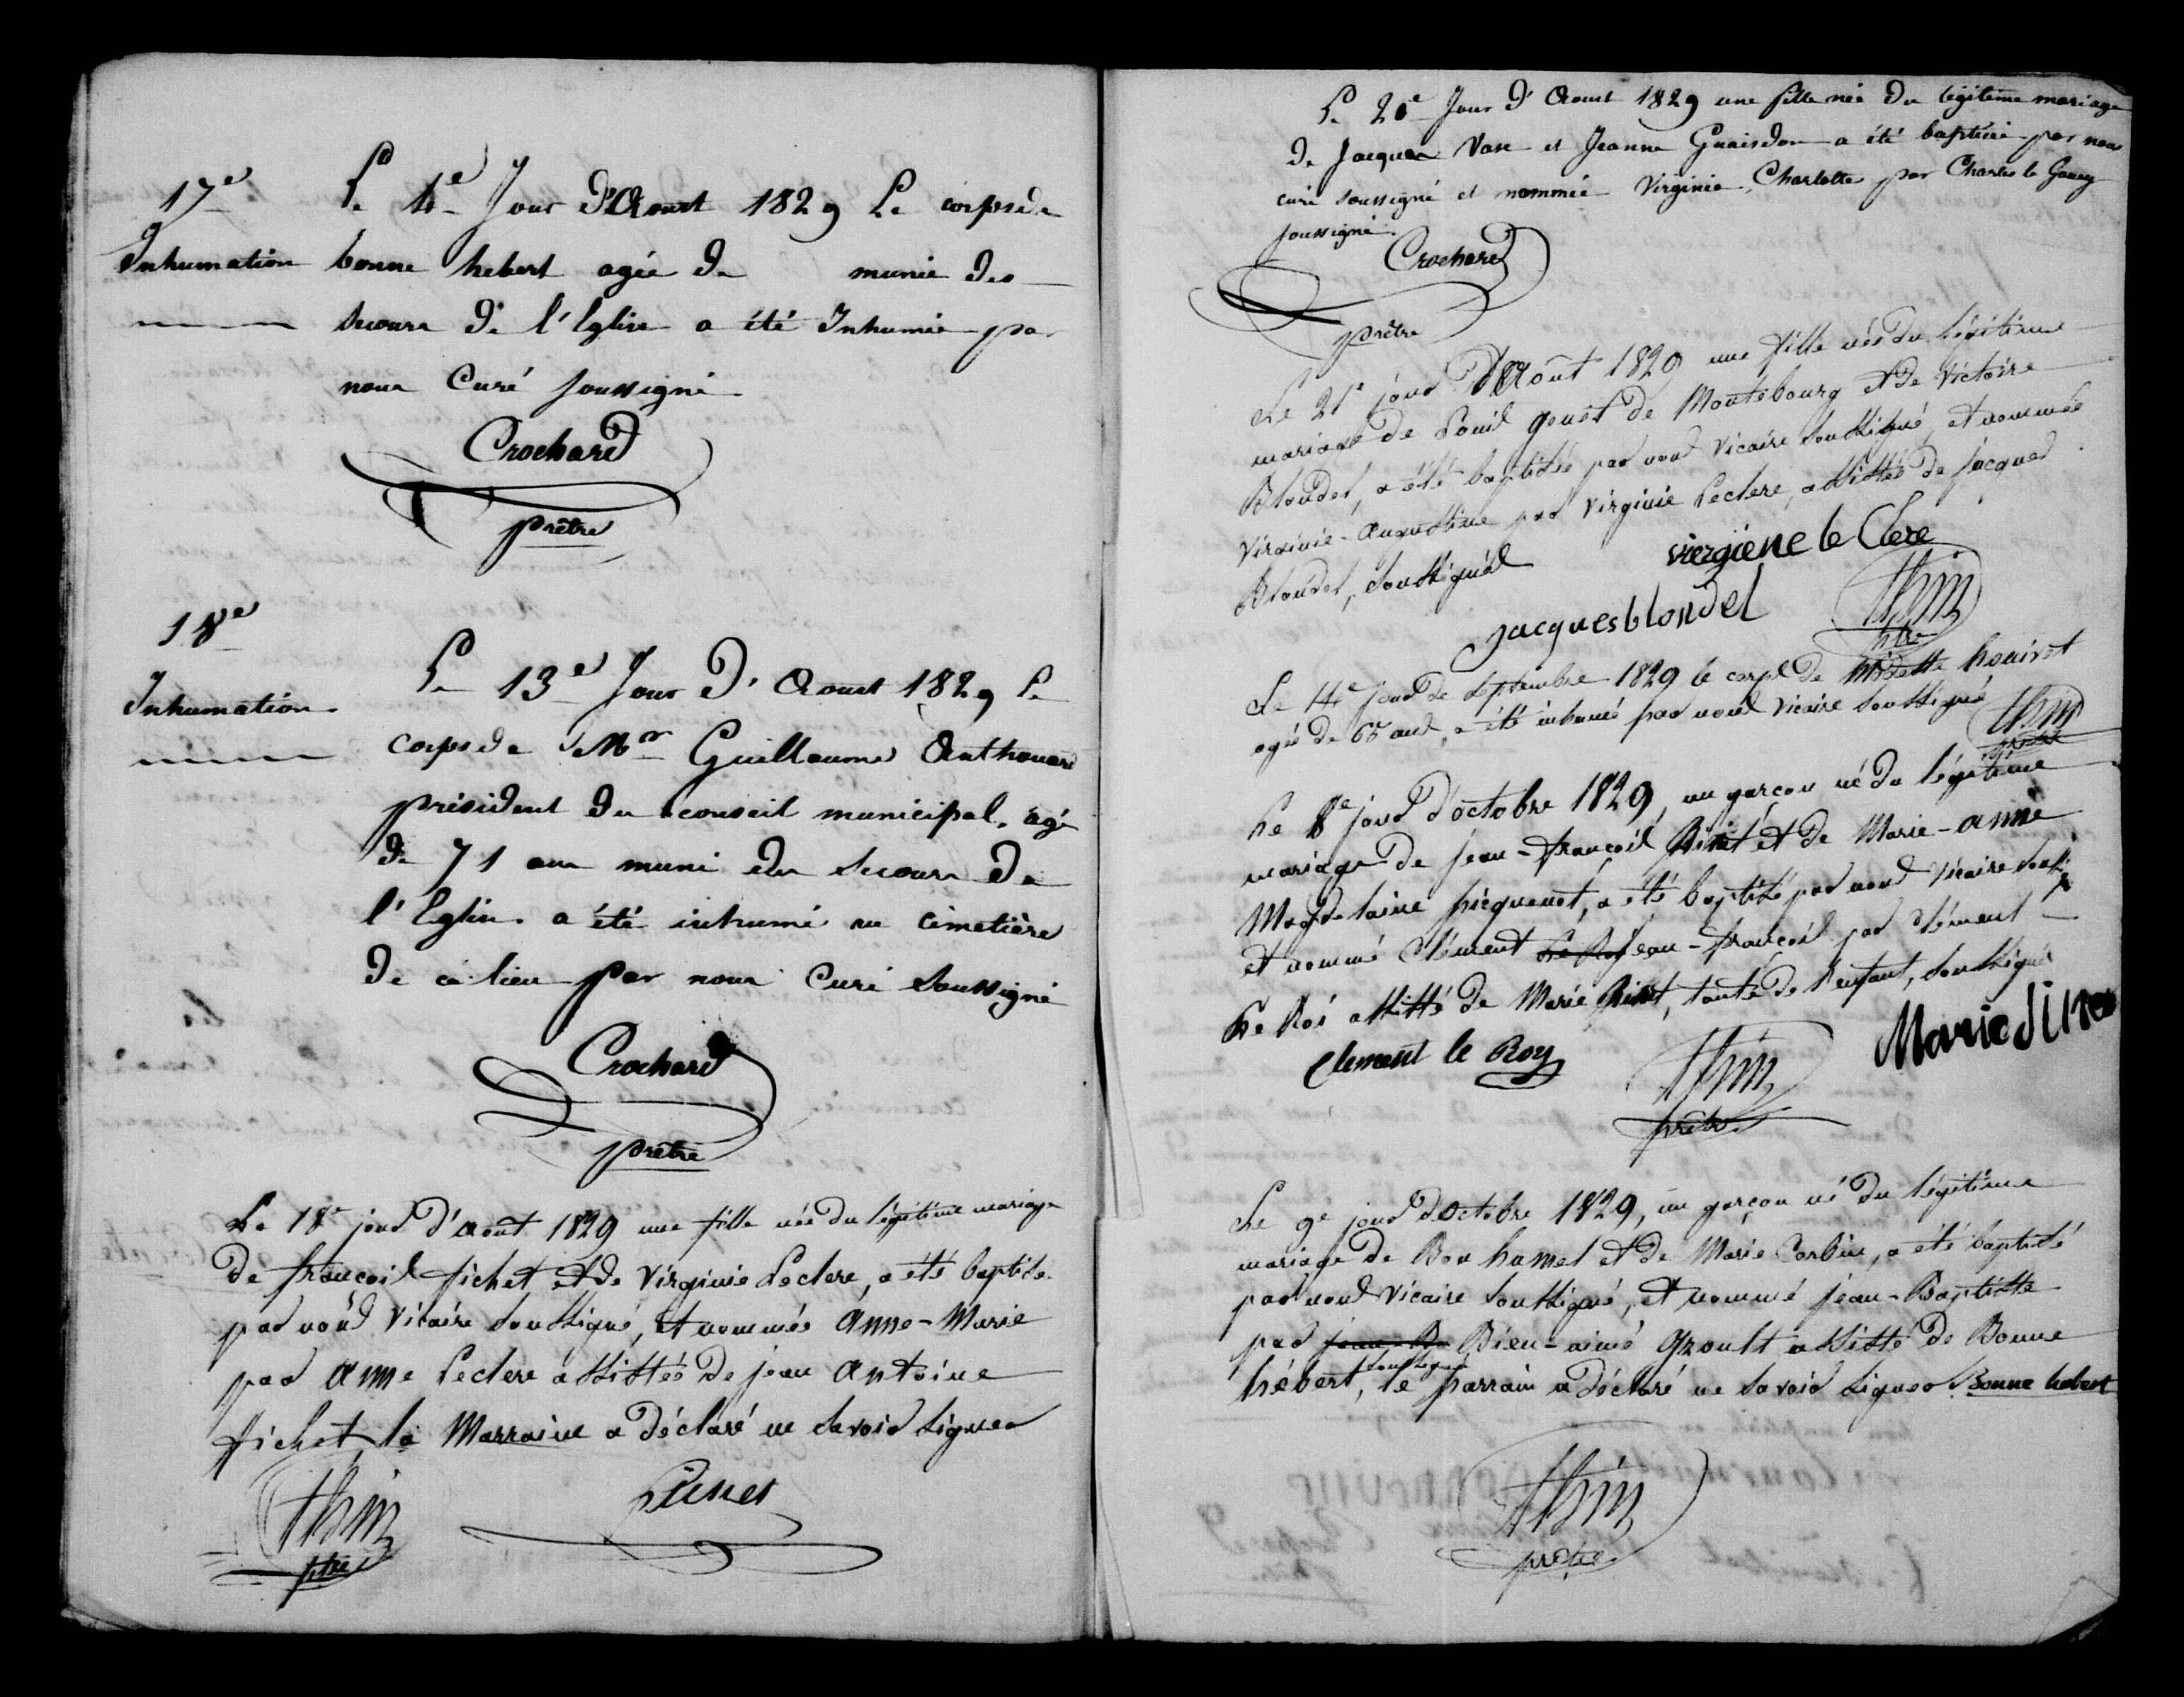 17e
Inhumation
Le 1e Jour d'Aoust 1829 Le corps de
bonne hebert agée de munie des
secours de l'Eglise a été Inhumée par
nous Curé soussigné
Crochard
prêtre
18e
Inhumation
Le 13e Jour d'Aoust 1829 Le
corps de Mr Guillaume Anthouard
président du conseil municipal. agé
de 71 ans muni des secours de
l'Eglise. a été inhumé au cimetière
de ce lieu par nous Curé soussigné
Crochard
prêtre
Le 18e jour d'aout 1829 une fille née du légitime mariage
de françois fichet et de Virginie Leclere, a été baptisée
par nous Vicaire soussigné, et nommée Anne-Marie
par Anne Leclere assistée de jean Antoine
fichet, la Marraine a déclaré ne savoir signer
thin
ptre
Le 20e Jour d'Aoust 1829 une fille née du légitime mariage
de Jacques Vase et Jeanne Guaisdon a été baptisée par nous
curé soussigné et nommée Virginie, Charlotte par Charles le
soussigné.
Crochard
prêtre
Le 21e jour d'Août 1829 une fille née du légitime
mariage de Louis gouet de Montebourg et de Victoire
Blondel, a été baptisée par nous Vicaire soussigné, et nommée
Virginie-Augustine par Virginie Leclere, assistée de jacques
Blondel, soussignés
viergiene le Clere
jacques blondel
thin
ptre
Le 14e jour de septembre 1829 le corps de Modeste houivet
agée de 65 ans, a été inhumé par nous Vicaire soussigné
thin
prêtre
Le 8e jour d'octobre 1829, un garçon né du légitime
mariage de jean-françois et de Marie-anne
Magdelaine picquenot, a été baptisé par nous Vicaire
et nommé Clément jean-françois par Clément
Le Roi assisté de Marie, tante de l'enfant, soussignés
Clement le Roy
thin
prêtre
Marie
Le 9e jour d'octobre 1829, un garçon né du légitime
mariage de Bon hamel et de Marie Corbin, a été baptisé
par nous Vicaire soussigné, et nommé jean-Baptiste
par Bien-aimé Groult assisté de Bonne
hébert, soussignée le parrain a déclaré ne savoir signer Bonne hebert
thin
prêtre